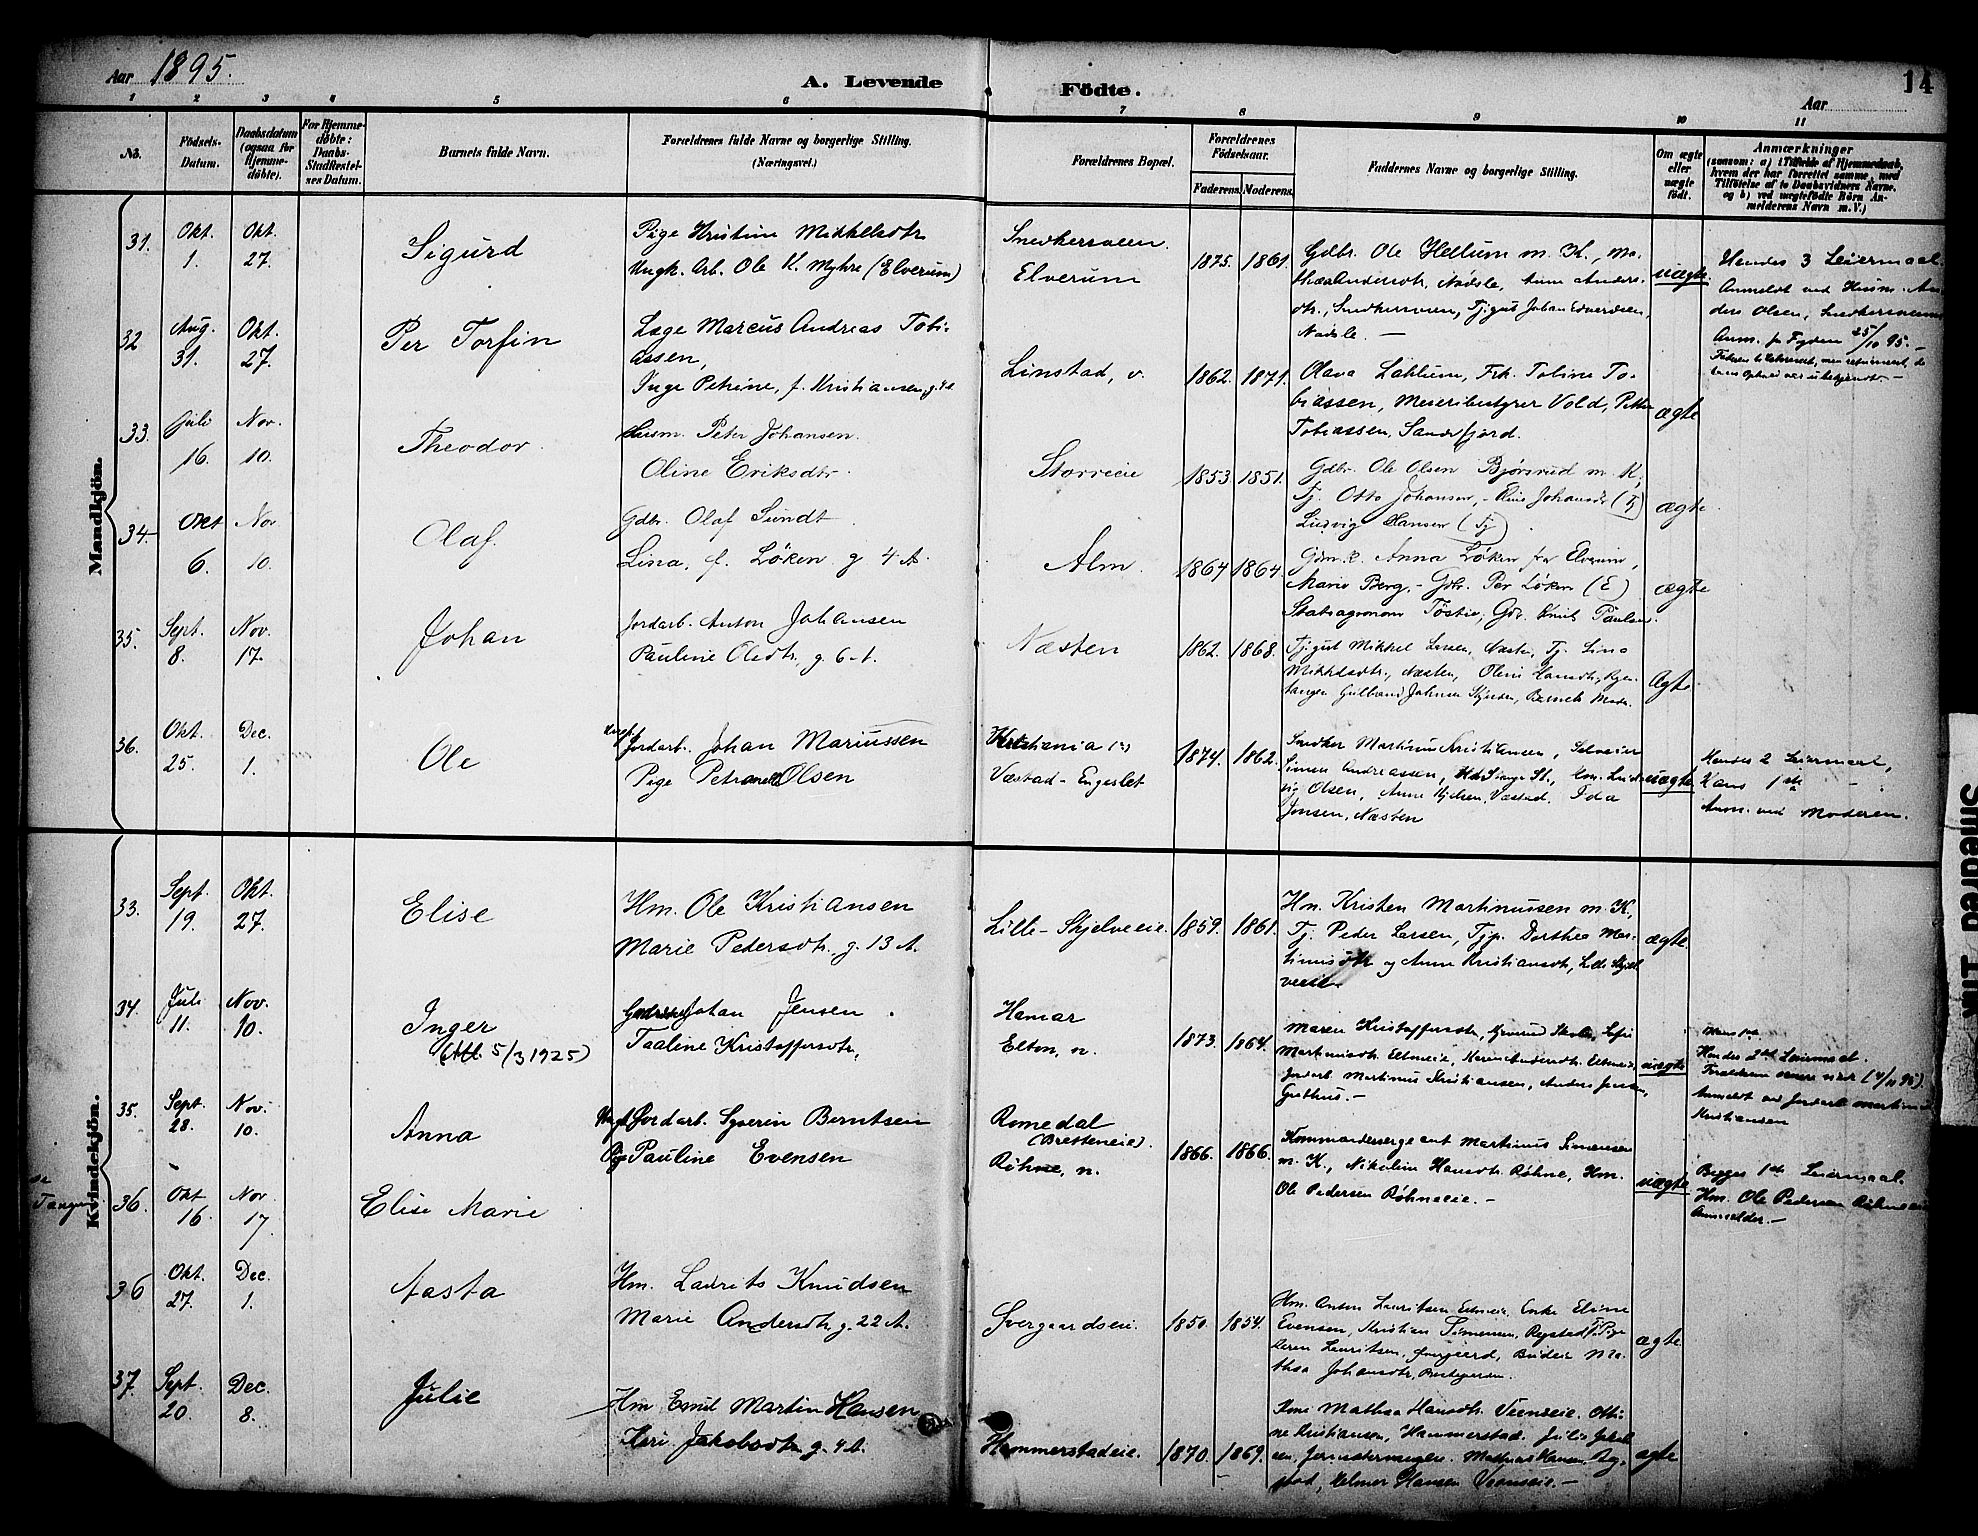 Aar 1895.
A. Levende Födte.
14
Aar
1 2 3 4 5 6 7 8 9 10 11
No.
Födsels-
Datum.
Daabsdatum
(ogsaa for
Hjemme-
døbte).
For Hjemme-
døbte:
Daabs-
Stadfæstel-
ses Datum.
Barnets fulde Navn.
Forældrenes fulde Navne og borgerlige Stilling.
(Næringsvei.)
Forældrenes Bopæl.
Forældrenes
Födselsaar.
Faderens. Moderens.
Faddernes Navne og borgerlige Stilling.
Om ægte
eller
uægte
født.
Anmærkninger
(saasom: a) i Tilfælde af Hjemmedaab,
hvem der har forrettet samme, med
Tilföielse af to Daabsvidners Navne,
og b) ved uægtefödte Börn An-
melderens Navn m. V.)
Mandkjön.
31. Okt. 1. Okt. 27.
Sigurd
Pige Kristine Mikkelsdtr
Ungk. Arb. Ole K. Myhre (Elverum)
Snedkersveen.
Elverum
1875. 1861.
Gdbr. Ole Hellum m. K., Ma-
thea Andersdtr, Nadsle, Anne Anders-
dtr., Snedkersveen, Tjgut Johan Edvardsen,
Nadsle. —
uægte
Hendes 3 Leiermaal.
Anmeldt ved Husm. An-
ders Olsen, Snedkersveen
Anm. fr Fogden 25/10 95. —
32 Aug. 31. Okt. 27.
Per Torfin
Læge Marcus Andreas Tobi-
assen,
Inge Petrine, f. Kristiansen, g. 4 A
Linstad, v.
1862. 1871.
Olava Lahlum, Frk. Tobine To-
biassen, Meieribestyrer Vold, Petter
Tobiassen, Sandefjord.
ægte
33. Juli 16. Nov. 10.
Theodor
Husm. Peter Johansen.
Oline Eriksdtr.
Storreeie
1853. 1851.
Gdbr. Ole Olsen Bjørsrud m. K.,
Tj. Otto Johansen, Eline Johansdtr (Tj)
Ludvig Hansen (Tj)
ægte
34. Okt 6. Nov 10.
Olaf.
Gdbr. Olaf Sundt.
Lina, f. Løken g 4 A.
Alm.
1864 1864.
Gdm.k. Anna Løken fra Elverum,
Marie Berg, Gdbr. Per Løken (E)
Statsagronom Tøstie, Gdbr. Knut Paulsen.
ægte
35. Sept. 8. Nov. 17.
Johan
Jordarb. Anton Johansen
Pauline Olsdtr. g. 6 A.
Næsten
1862. 1868.
Tjgut Mikkel Larsen, Næsten, Tj. Lina
Mikkelsdtr., Næsten, Oline Hansdtr,
Gulbrand Johnsen
ægte
36. Okt. 25. Dec. 1.
Ole
Ungk. Jordarb. Johan Mariussen
Pige Petronelle Olsen
Kristiania
Væstad - Engeslet
1874. 1862.
Snedker Martinus Kristiansen, Selveier
Simen Andreassen,
Olsen, Anne Kjelsen, Væstad, Ida
Jonsen, Næsten
uægte
Hendes 2 Leiermaal,
Hans 1ste — .
Anm. ved Moderen.
Kvindekjön.
33. Sept. 19. Okt. 27.
Elise
Hm. Ole Kristiansen
Marie Pedersdtr. g. 13 A.
Lille-Skjelveeie.
1859. 1861.
Hm. Kristen Martinussen m. K,
Tj. Peder Larsen, Tjp. Dorthea Mar-
tinusdtr og Anne Kristiansdtr, Lille Skjel-
veeie
ægte.
34. Juli 11. Nov. 10.
Inger
(Att. 5/3 1925)
Johan Jensen.
Taaline Kristoffersdtr,
Hamar
Elton, n.
1873. 1864.
Maren Kristoffersdtr,
Martinusdtr. Eltoneie, Karen Andersdtr. Eltoneie,
Jordarb Martinus Kristiansen, Anders Jensen,
Grethus. —
uægte
Hans 1ste.
Hendes 2det Leiermaal.
Anmeldt ved Jordarb Martinus
Kristiansen
35. Sept. 28. Nov. 10.
Anna
Ungk. Jordarb. Syverin Berntsen
Pige Pauline Evensen
Romedal
(Bresteneie).
Røhne, n.
1866. 1866.
Kommandersergeant Martinus Simensen
m. K., Nikoline Hansdtr. Røhne, Hm.
Ole Pedersen Røhneeie. —
uægte
Begges 1ste Leiermaal.
Hm. Ole Pedersen Røhneeie
Anmelder. —
Tangen
36. Okt 16. Nov 17.
Elise Marie
36 Okt. 27. Dec. 1.
Aasta
Hm. Laurits Knudsen
Marie Andersdtr g. 22 A.
Gvergaardseie.
1850. 1854.
Hm. Anton Lauritsen, Eltoneie, Enke Eline
Evensen, Kristian Simensen, Rogstad, Tj. Pige
Karen Lauritsen, Budeie Ma-
thea Johansdtr,
ægte
37. Sept. 20. Dec. 8.
Julie
Hm Emil Martin Hansen
Kari Jakobsdtr g. 4 A.
Hammerstadeie.
1870. 1869.
Kone Mathea Hansdtr. Veenseie. Otti-
ne Kristiansen, Hammerstad. Julie Jakob-
sen, Mathias Hansen, Rog-
stad, Helmer Hansen Veenseie. —
ægte
Smeared Ink